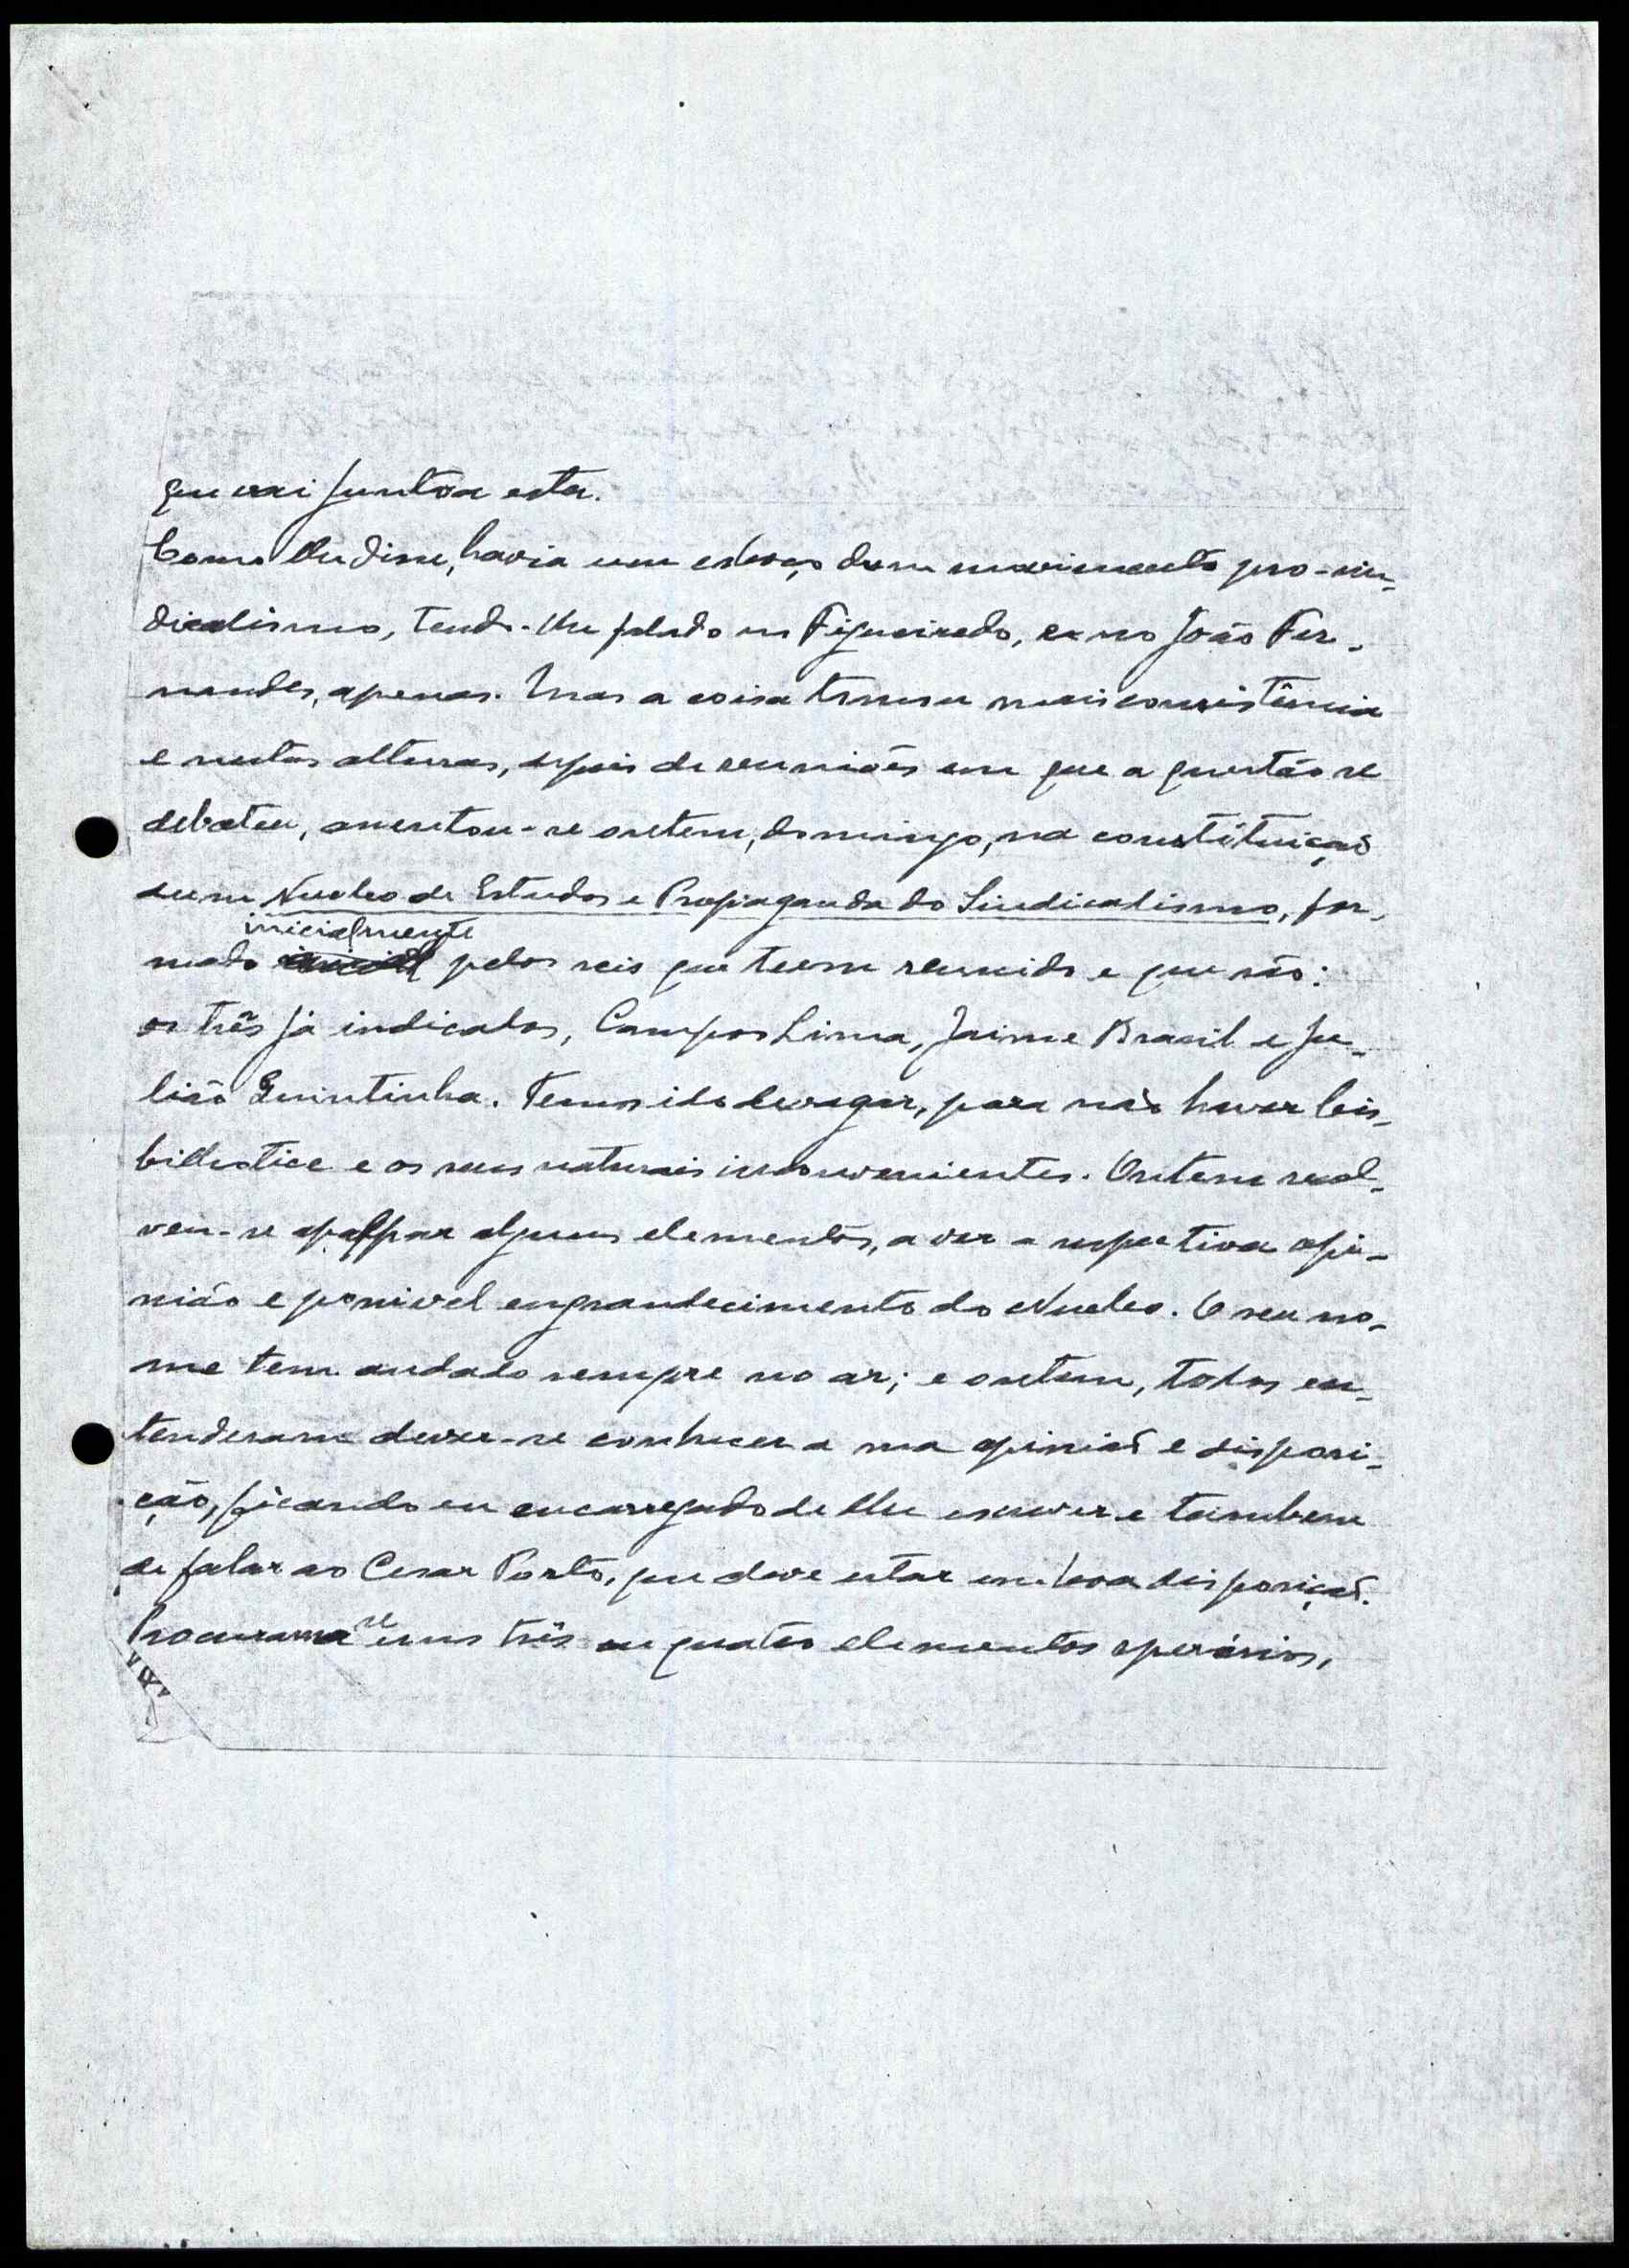 que vai junto a esta.
Como lhe disse, havia um esboço dum movimento pro-sin-
dicalismo, tendo-lhe falado no Figueiredo, eu no João Fer-
nandes, apenas. Mas a coisa tomou mais consistência
e nestas alturas, depois de reuniões em que a questão se
debateu, assentou-se ontem, domingo, na constituição
dum Nucleo de Estudos e Propaganda do Sindicalismo, for-
inicialmente
mado pelos seis que teem reunido e que são:
os três já indicados, Campos Lima, Jaime Brasil e Ju-
lião Quintinha. Temos ido devagar, para não haver bis-
bilhotice e os seus naturais inconvenientes. Ontem resol-
veu-se apalpar alguns elementos, a ver a respectiva opi-
nião e possivel engrandecimento do Nucleo. O seu no-
me tem andado sempre no ar; e ontem, todos en-
tenderam dever-se conhecer a sua opinião e disposi-
ção, ficando eu encarregado de lhe escrever e tambem
de falar ao Cesar Porto, que deve estar em boa disposição.
Procurama se uns três ou quatro elementos operários,